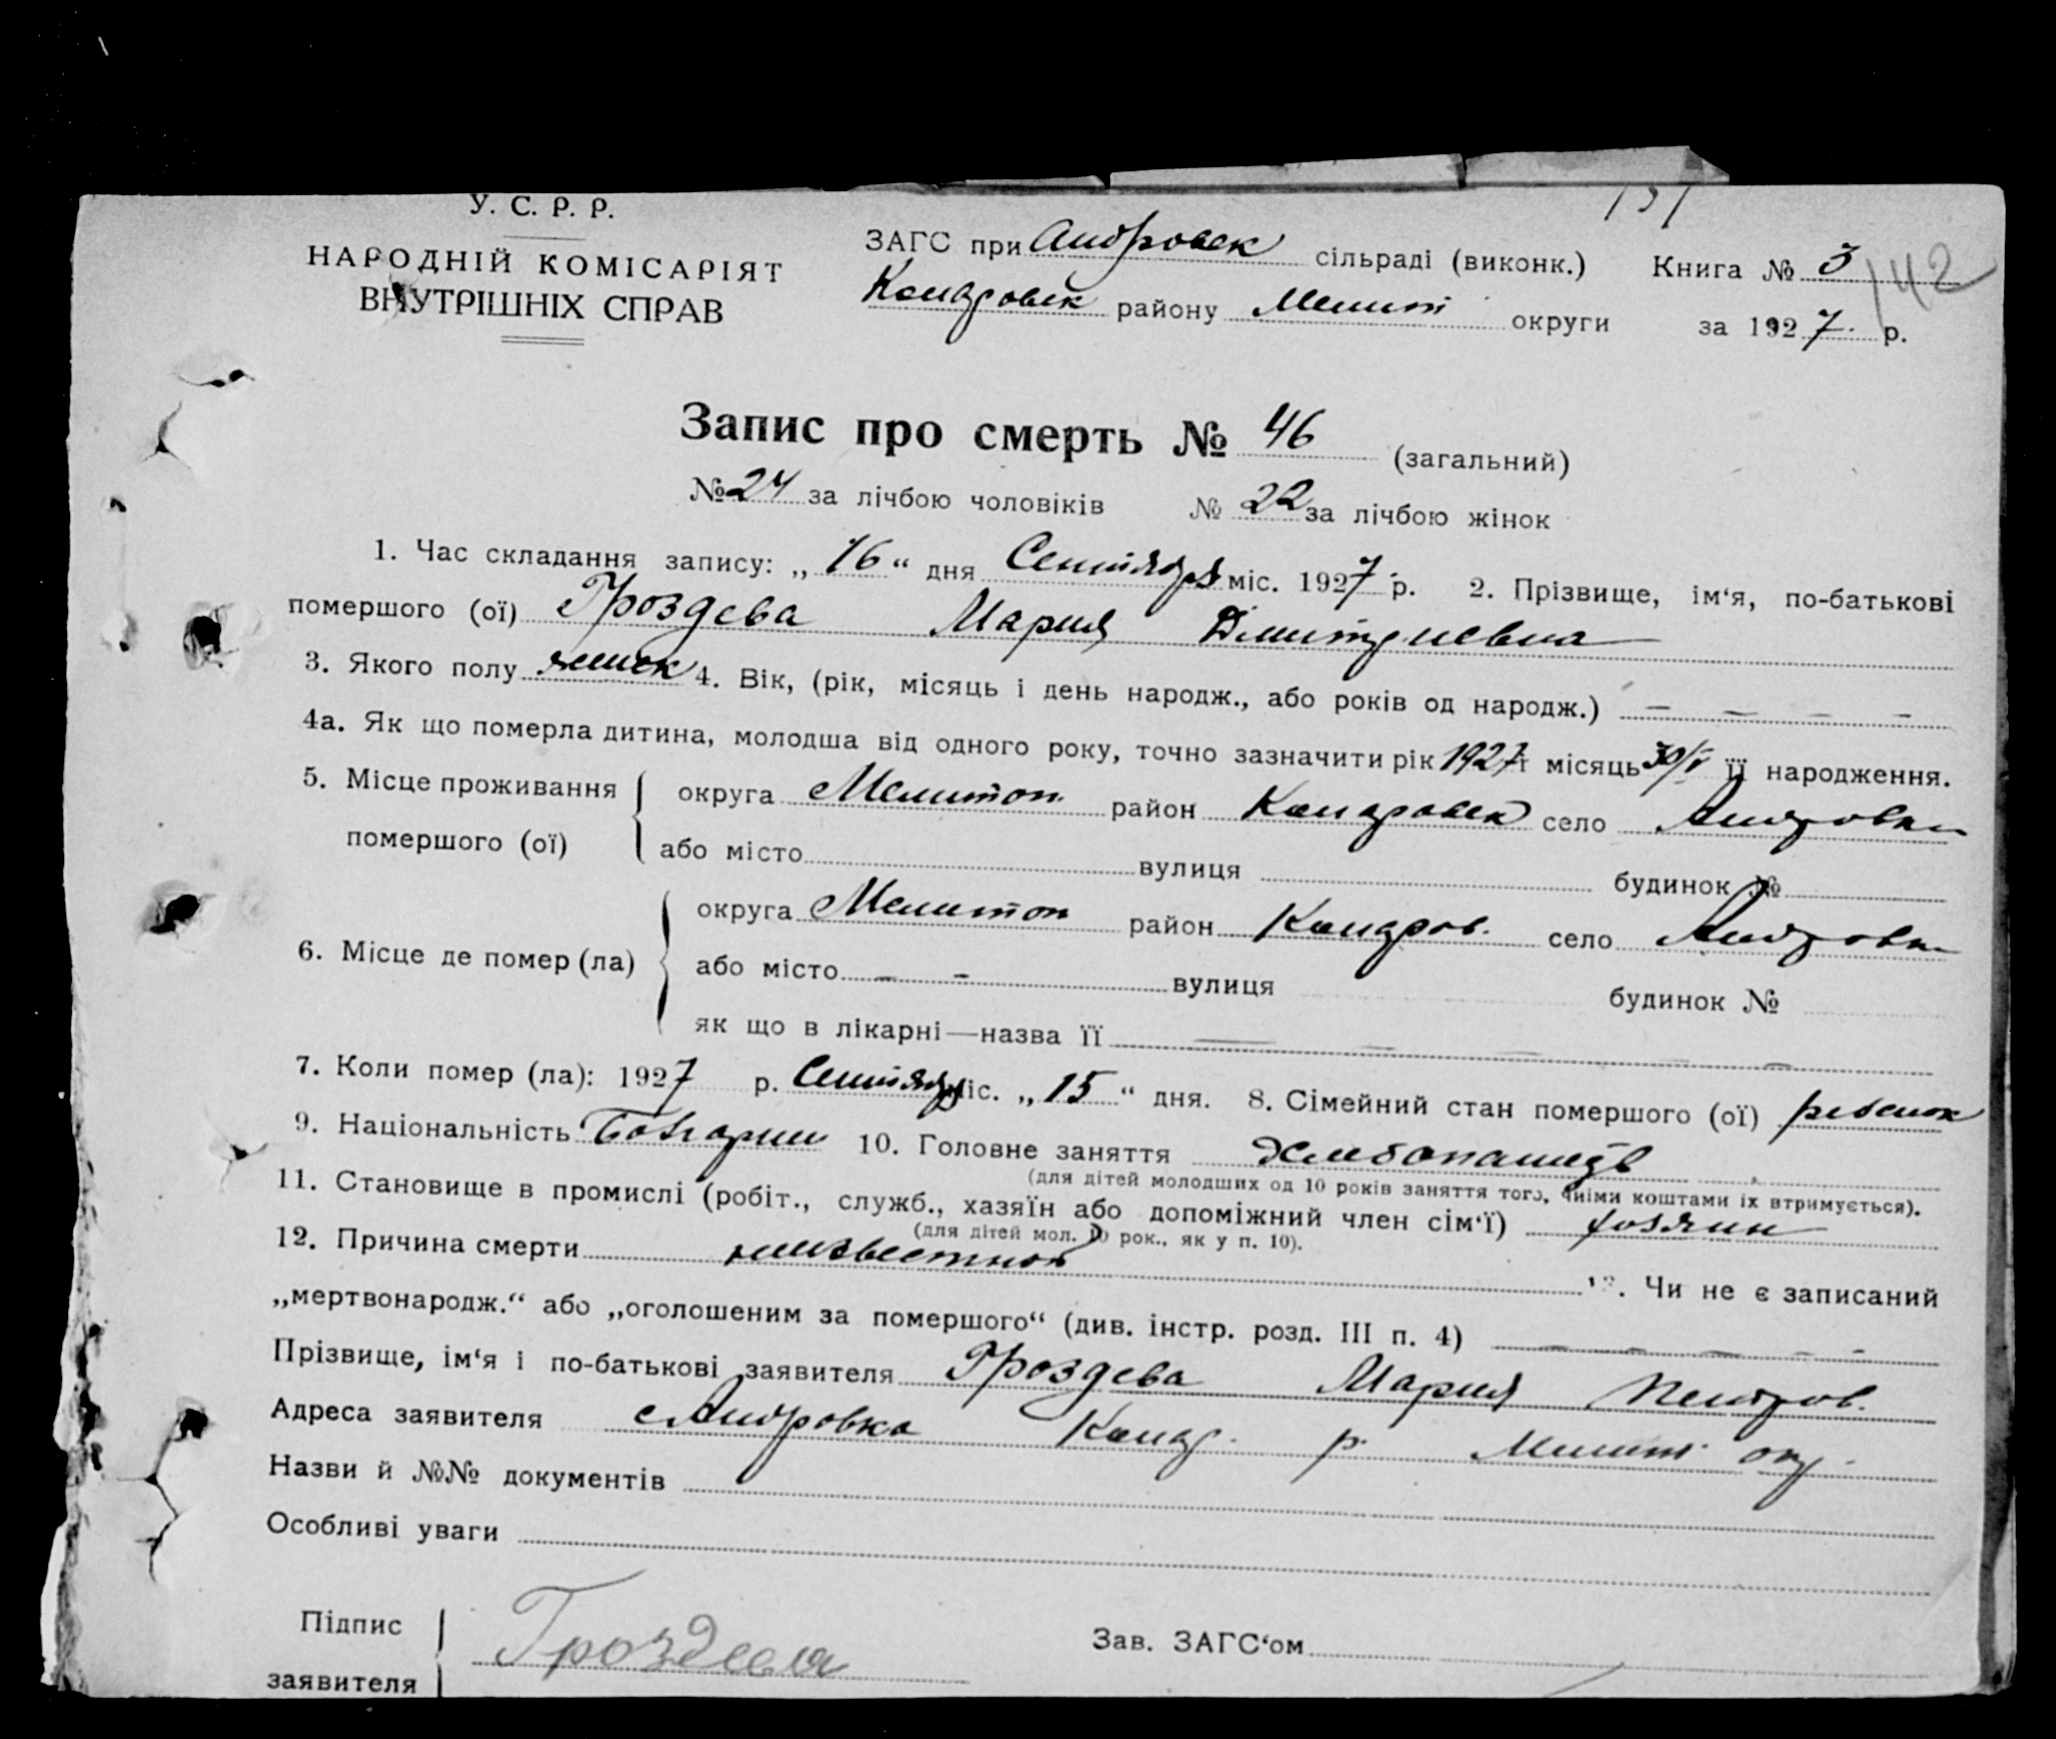 У. С. Р. Р.
НАРОДНІЙ КОМІСАРІЯТ
ВНУТРІШНІХ СПРАВ
ЗАГС при Андровск сільраді (виконк.) Книга № 3
142
района Мелит округи за 1927 р.
Запис про смерть № 46 (загальний)
№ 24 за лічбою чоловіків № 22 за лічбою жінок
1. Час складання запису: „16“ дня Сентября міс. 1927 р. 2. Прізвище, ім‘я, по-батькові
помершого (ої) Гроздева Мария Дмитриевна
3. Якого полу женск 4. Вік, (рік, місяць і день народж., або років од народж.) – – – –
4а. Як що померла дитина, молодша від одного року, точно зазначити рік 1927 місяць 30/V її народження.
5. Місце проживання округа Мелитоп. район село Андровка
помершого (ої) або місто вулиця будинок №
6. Місце де помер (ла) округа Мелитоп район село Андровк
або місто – – вулиця будинок №
як що в лікарні—назва її — – – – –
7. Коли помер (ла): 1927 р. Сентябр міс. „15“ дня. 8. Сімейний стан помершого (ої) ребенок
9. Національність Болгарин 10. Головне заняття Хлебопашедв
(для дітей молодших од 10 років заняття того, чиїми коштами їх втримується).
11. Становище в промислі (робіт., служб., хазяїн або допоміжний член сім‘ї) хозяин
(для дітей мол. 10 рок., як у п. 10).
12. Причина смерти неизвестной 13. Чи не є записаний
„мертвонародж.“ або „оголошеним за помершого“ (див. інстр. розд. III п. 4) – – – – –
Прізвище, ім‘я і по-батькові заявителя Гроздева Мария Петров.
Адреса заявителя с Андровка р. Мелит. окр.
Назви й №№ документів
Особливі уваги
Підпис
заявителя Гроздева Зав. ЗАГС‘ом